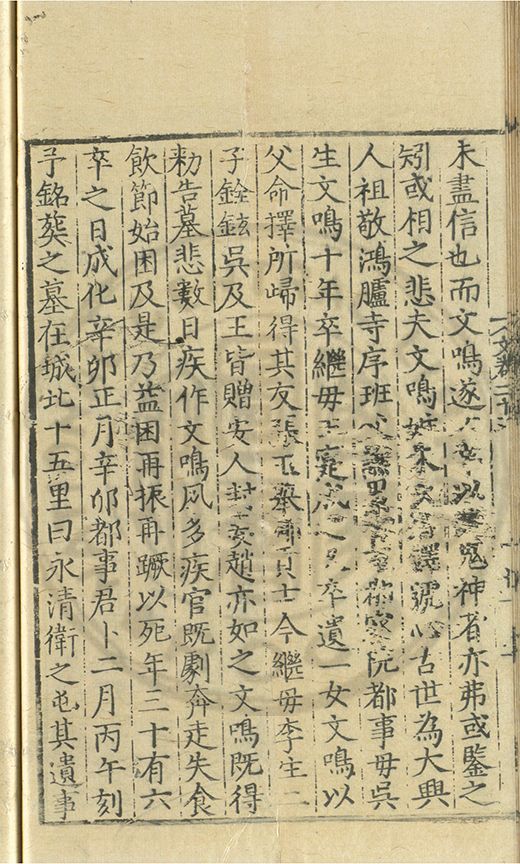 未盡信也而文鳴遂以鬼神者亦弗或鑒之
矧或相之悲夫文鳴姓古世為大興
人祖敬鴻臚寺序班阮都事母吳
生文鳴十年卒繼母王寔卒遺一女文鳴以
父命擇所歸得其友張貢士今繼母李生二
子銓鉉吳及王皆贈安人封安趙亦如之文鳴既得
勑告墓悲數日疾作文鳴夙多疾官既劇奔走失食
飲節始困及是乃益困再振再蹶以死年三十有六
卒之日成化辛卯正月辛卯都事君卜二月丙午刻
予銘葬之墓在城北十五里曰永清衛之屯其遺事